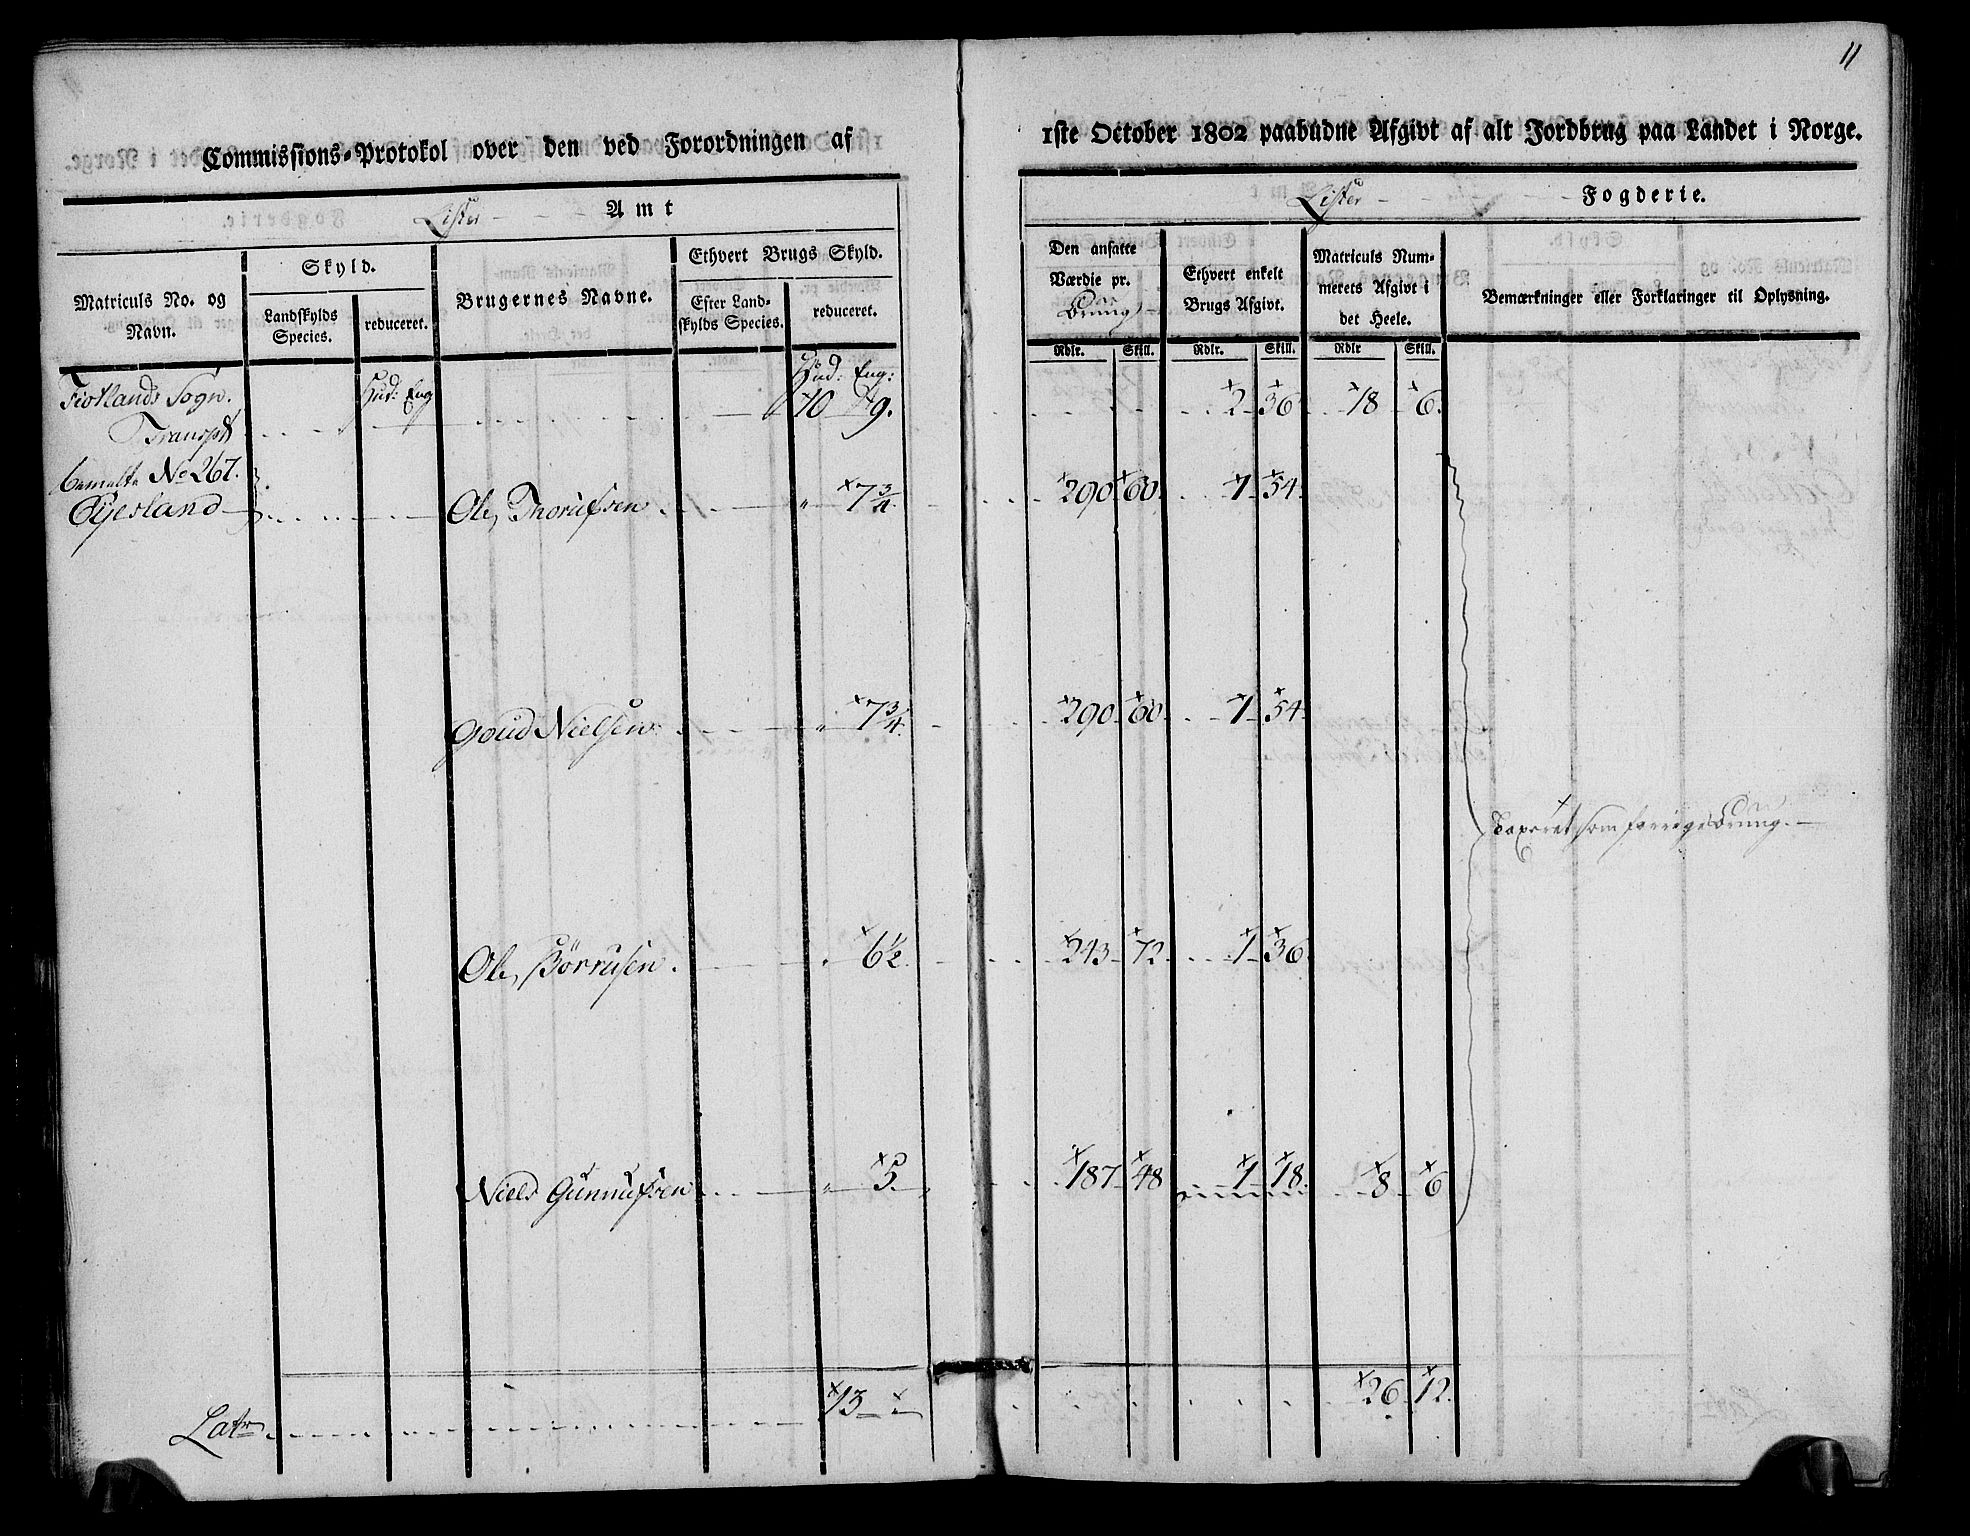 11
Commissions-Protokol over den ved Forordningen af
1ste October 1802 paabudne Afgivt af alt Jordbrug paa Landet i Norge.
Lister - - - Amt
Lister - - - Fogderie.
Matriculs No. og Navn.
Skyld.
Landskylds Species.
reduceret.
Brugernes Navne.
Ethvert Brugs Skyld.
Efter Landskylds Species.
reduceret.
Den ansatte Værdie pr.
Ethvert enkelt Brugs Afgivt.
Matriculs Nummerets Afgivt i det Heele.
Bemærkninger eller Forklaringer til Oplysning.
Rdlr. Skill. Rdlr. Skill. Rdlr Skill.
Fiotlands Sogn. Hud: Eng Hud: Eng:
Transpt 10 9. 2 36 18 6.
No 267.
Eyesland Ole Thorüfsen " 7 3/4 290 60. 1 54.
Goud Nielsen " 7 3/4. 290 60. 1 54
Taxeret som forrige
Ole Börrüsen. " 6 1/2. 243 72. 1 36
Niels Gunnufsen " 5. 187 48 1 18. 8 6
Latr 13 " 26 12.